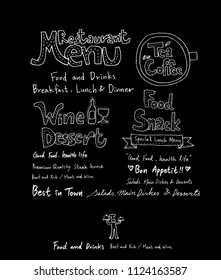 Restaurant
Menu
Food and Drinks
Breakfast. Lunch & Dinner
Tea
Coffee
Wine
Dessert
Good Food. health life
Premium Quality Steak house
Beef and Pork / Meats and Wine
Best in Town
Food
Snack
Special Lunch Menu
"Good Food. health life"
Bon Appetit!!
Salads. Main Dishes & Desserts
Salads. Main Dishes & Desserts
Food and Drinks
Beef and Pork / Meats and Wine
shutterstock.com · 1124163587